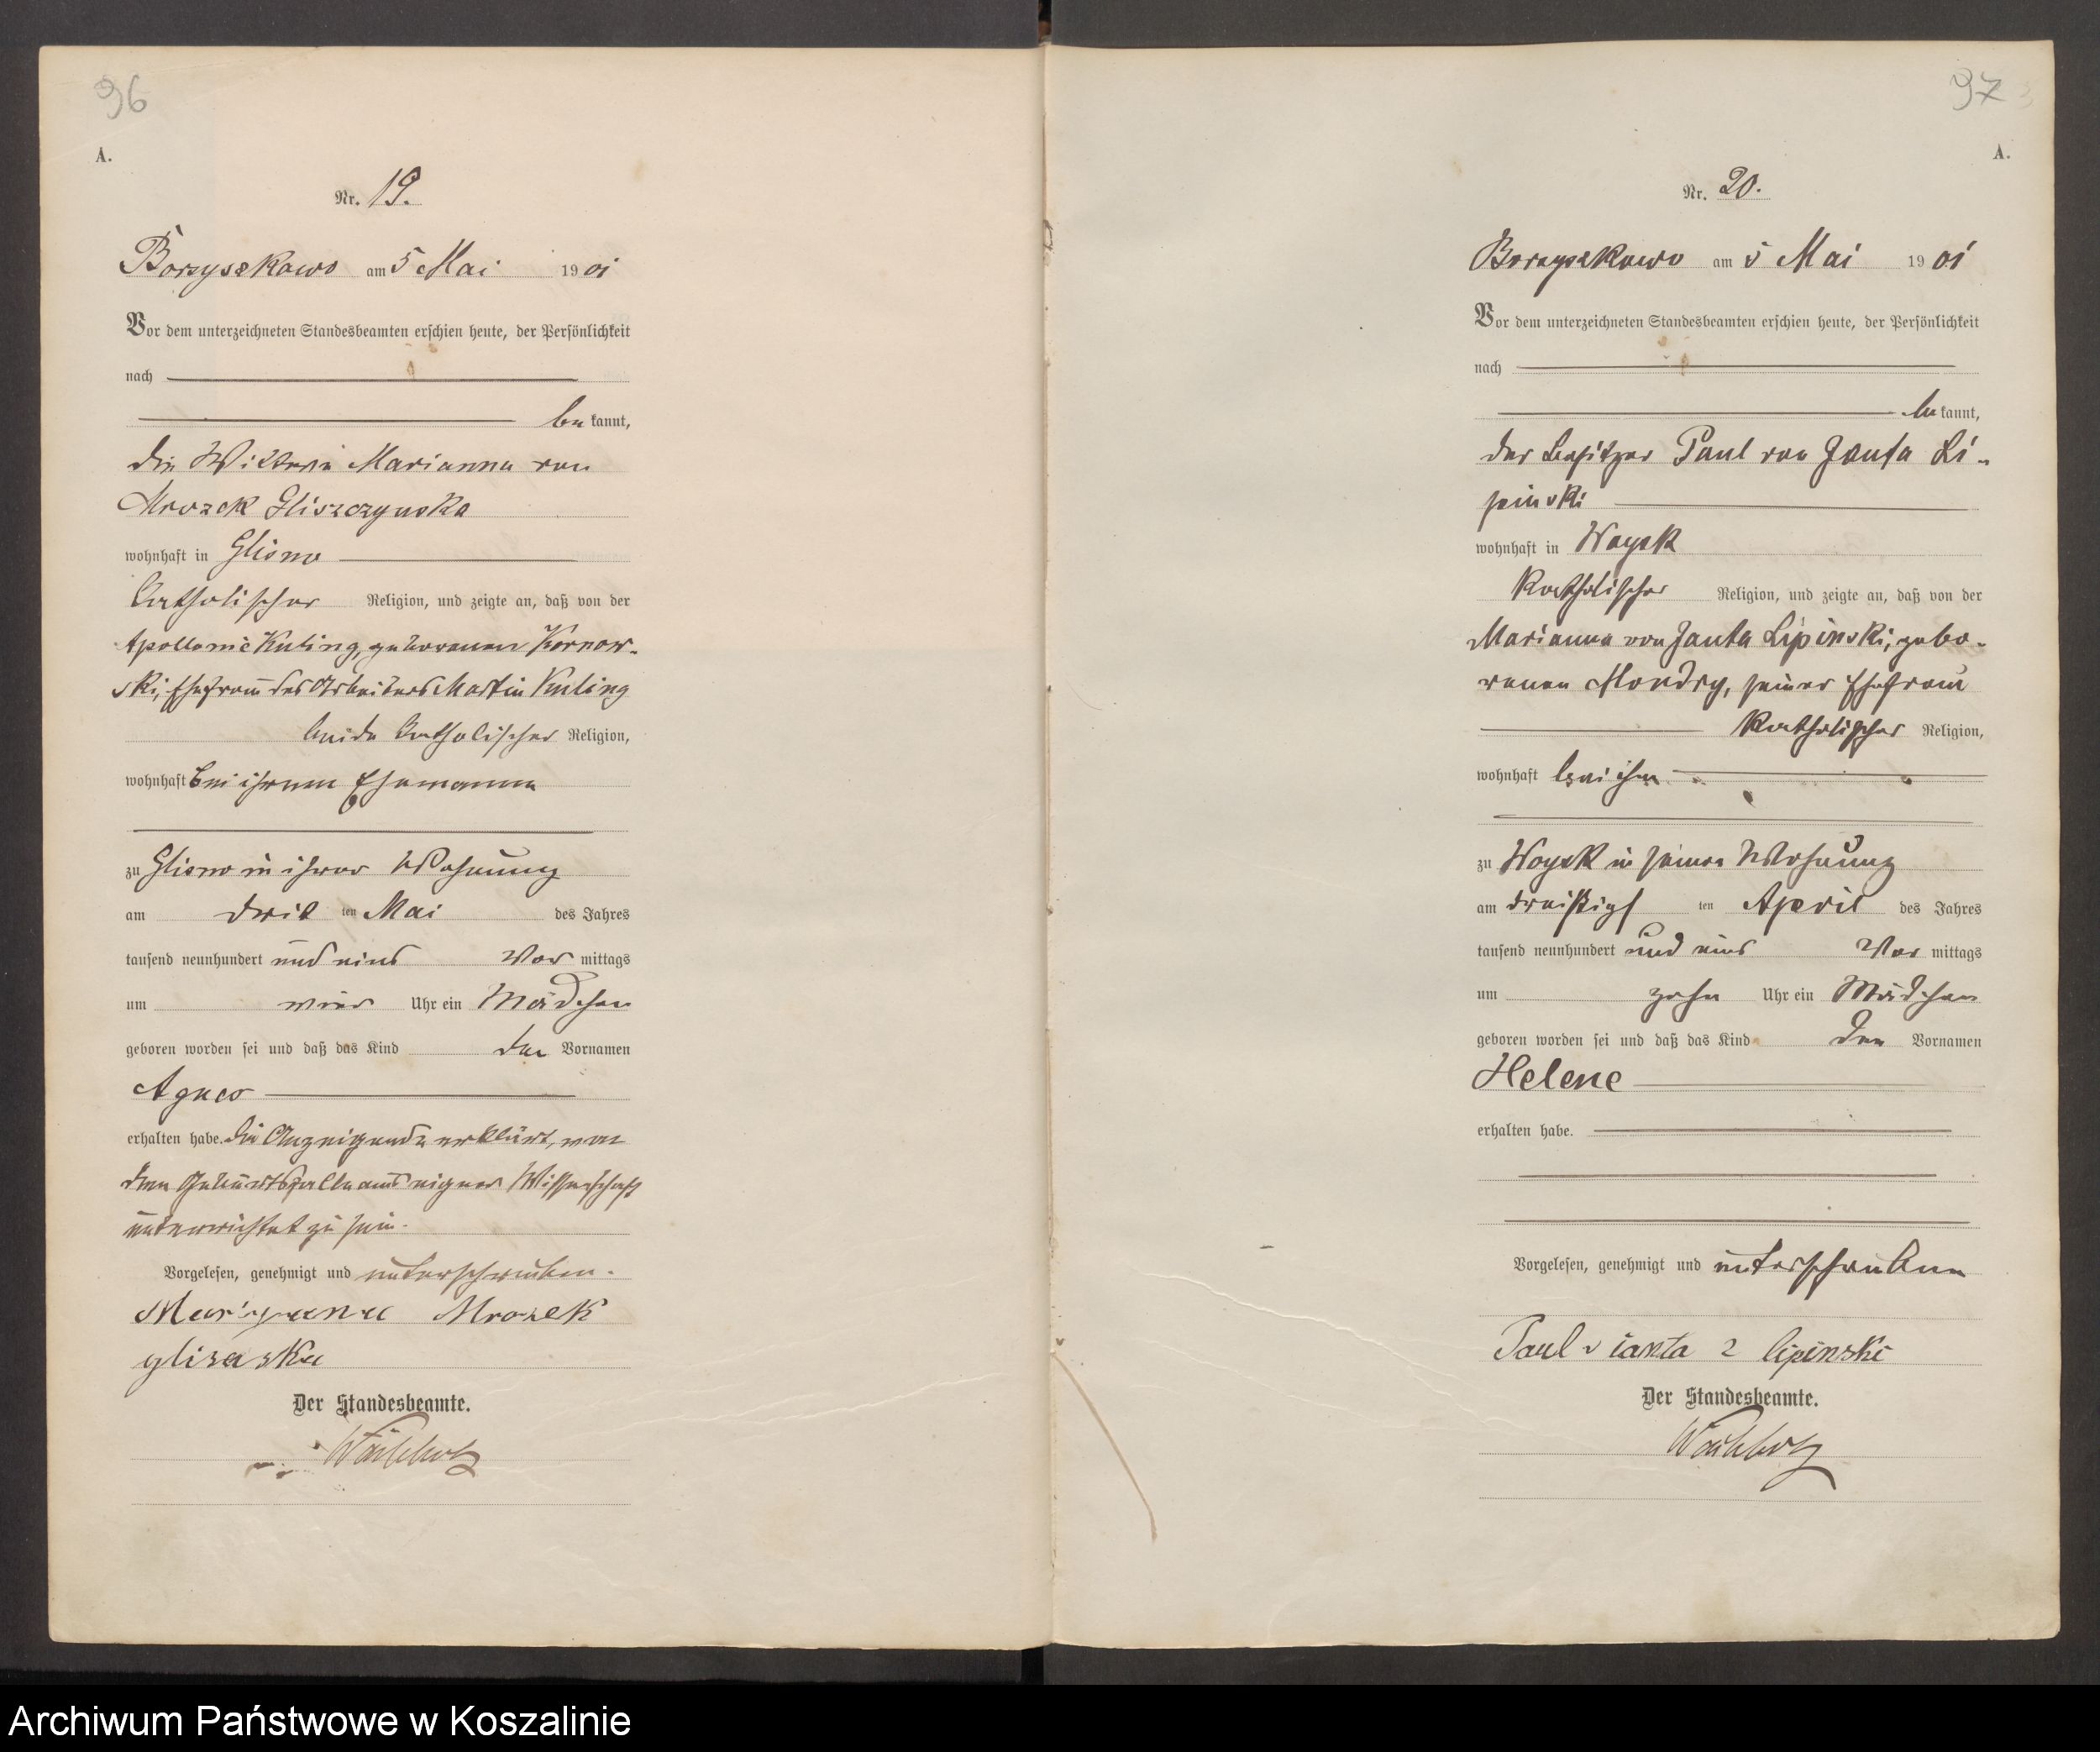 96
A.
Nr. 19.
Borzyszkowo am 5 Mai 1901
Vor dem unterzeichneten Standesbeamten erschien heute, der Persönlichkeit
nach
bekannt,
die Wikteria Marianna von
Mrozek Gliszczynska
wohnhaft in Glisno
katholischer Religion, und zeigte an, daß von der
Apollonie Kuling, geborenen Kornow-
ski, Ehefrau des Arbeiters Martin Kuling
beide katholischer Religion,
wohnhaft bei ihrem Ehemanne
zu Glisno in ihrer Wohnung
am drit ten Mai des Jahres
tausend neunhundert und eins Vor mittags
um vier Uhr ein Mädchen
geboren worden sei und daß das Kind den Vornamen
Agnes
erhalten habe. Die Anzeigende erklärt, von
dem Geburtsfalle aus eigner Wissenschaft
unterrichtet zu sein.
Vorgelesen, genehmigt und unterschrieben.
Maryana Mrozek
gliszska
Der Standesbeamte.
97
A.
Nr. 20.
Borzyszkowo am 5 Mai 1901
Vor dem unterzeichneten Standesbeamten erschien heute, der Persönlichkeit
nach
bekannt,
der Besitzer Paul von Janta Li-
pinski
wohnhaft in Woysk
katholischer Religion, und zeigte an, daß von der
Marianna von Janta Lipinski, gebo-
renen Mondry, seiner Ehefrau
katholischer Religion,
wohnhaft bei ihm
zu Woysk in seiner Wohnung
am dreißigs ten April des Jahres
tausend neunhundert und eins Vor mittags
um zehn Uhr ein Mädchen
geboren worden sei und daß das Kind den Vornamen
Helene
erhalten habe.
Vorgelesen, genehmigt und unterschrieben
Paul v ianta 2 lipinski
Der Standesbeamte.
Archiwum Państwowe w Koszalinie